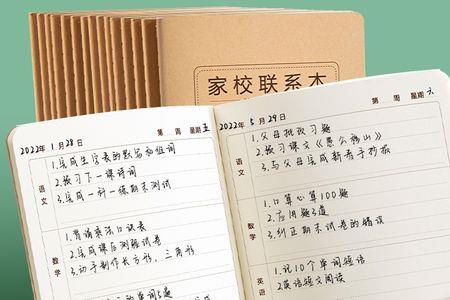 家校联系本
2022年 1月28日 第 周 星期五
语文
1.完成生字表的默写和组词
2.预习下一课诗词
3.完成一科一练期末测试
数学
1.背诵乘法口诀表
2.完成课后测验试卷
3.动手制作长方形、三角形
单词5遍
2022年 5月29日 第 周 星期六
语文
1.父母批改习题
2.预习课文《愚公移山》
3.与父母完成新春手抄报
数学
1.口算心算100题
2.应用题3道
3.纠正期末试卷的错误
英语
1.记10个单词短语
2.英语短文阅读